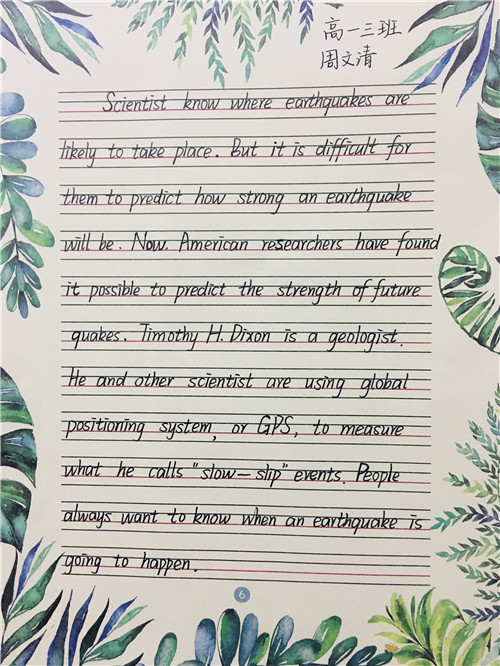 高一三班
周文清
Scientist know where earthquakes are
likely to take place. But it is difficult for
them to predict how strong an earthquake
will be. Now. American researchers have found
it possible to predict the strength of future
quakes. Timothy H. Dixon is a geologist.
He and other scientist are using global
positioning system, or GPS, to measure
what he calls "slow-slip" events. People
always want to know when an earthquake is
going to happen.
6